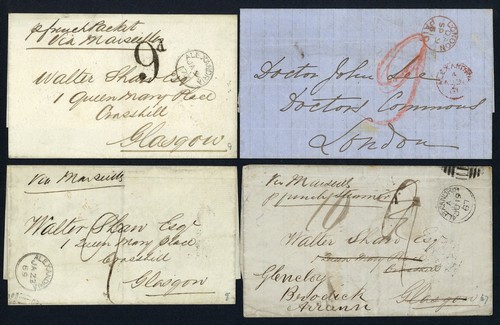 p french Packet
Via Marseilles
9d
Walter Shaw Esq
1 Queen Mary Place
Crosshill
Glasgow
LONDON
PAID
Doctor John Lee
Doctors Commons
London
Via Marseills
Walter Shaw Esqr
1 Queen Mary Place
Crosshill
Glasgow
ALEXANDRIA
JA 22
Via Marseills
p french steamer
Walter Shaw Esqr
Glencloy
Brodick
Arrann
Glasgow